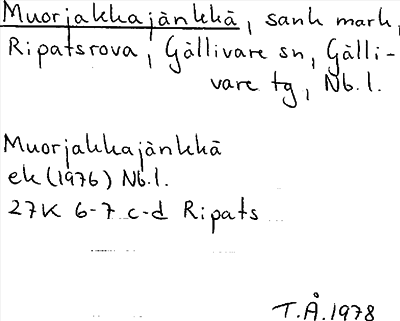 Muorjakkajänkkä, sank mark,
Ripatsrova, Gällivare sn, Gälli-
vare tg, Nb.l.
Muorjakkajänkkä
ek (1976) Nb.l.
27K 6-7 c-d Ripats
T.Å.1978